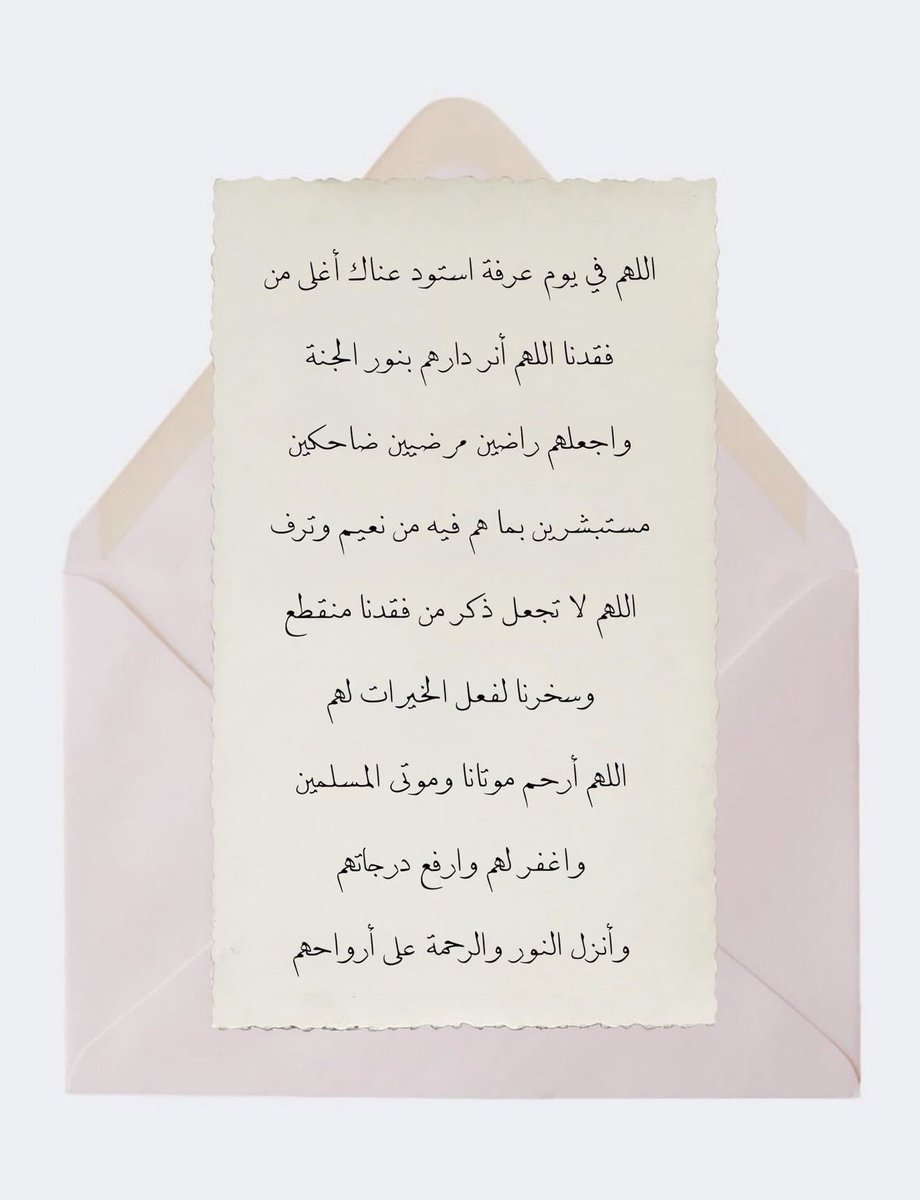 اللهم في يوم عرفة استود عناك أغلى من
فقدنا اللهم أنر دارهم بنور الجنة
واجعلهم راضين مرضيين ضاحكين
مستبشرين بما هم فيه من نعيم وترف
اللهم لا تجعل ذكر من فقدنا منقطع
وسخرنا لفعل الخيرات لهم
اللهم أرحم موتانا وموتى المسلمين
واغفر لهم وارفع درجاتهم
وأنزل النور والرحمة على أرواحهم